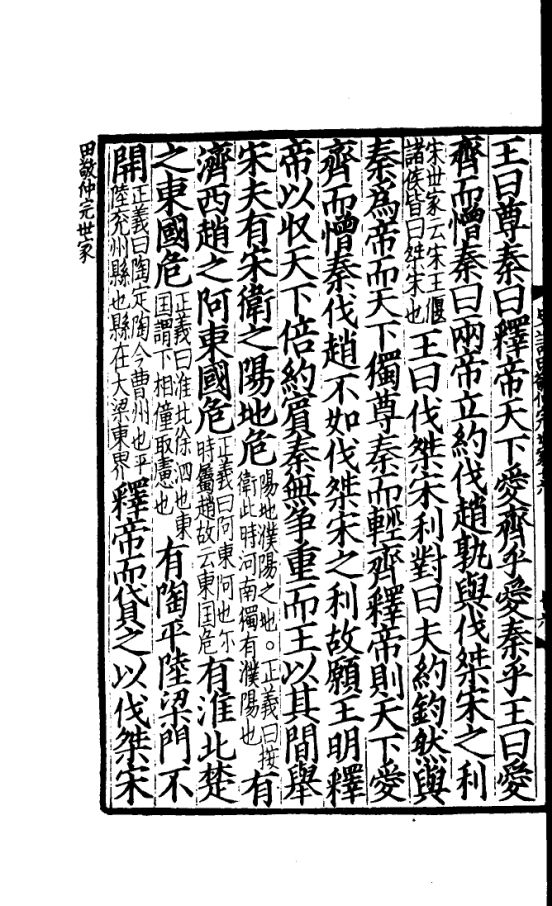 王曰尊秦曰釋帝天下愛齊乎愛秦乎王曰愛
齊而憎秦曰兩帝立約伐趙孰與伐桀宋之利
宋世家云宋王偃
諸侯皆曰桀宋也
王曰伐桀宋利對曰夫約鈞然與
秦爲帝而天下獨尊秦而輕齊釋帝則天下愛
齊而憎秦伐趙不如伐桀宋之利故願王明釋
帝以收天下倍約賓秦無爭重而王以其間舉
宋夫有宋衛之陽地危
陽地濮陽之地。正義曰按
衛此時河南獨有濮陽也
有
濟西趙之阿東國危
正義曰阿東阿也尔
時屬趙故云東国危
有淮北楚
之東國危
正義曰淮北徐泗也東
国謂下相僮取慮也
有陶平陸梁門不
開
正義曰陶定陶今曹州也平
陸兖州縣也縣在大梁東界
釋帝而貸之以伐桀宋
田敬仲完世家